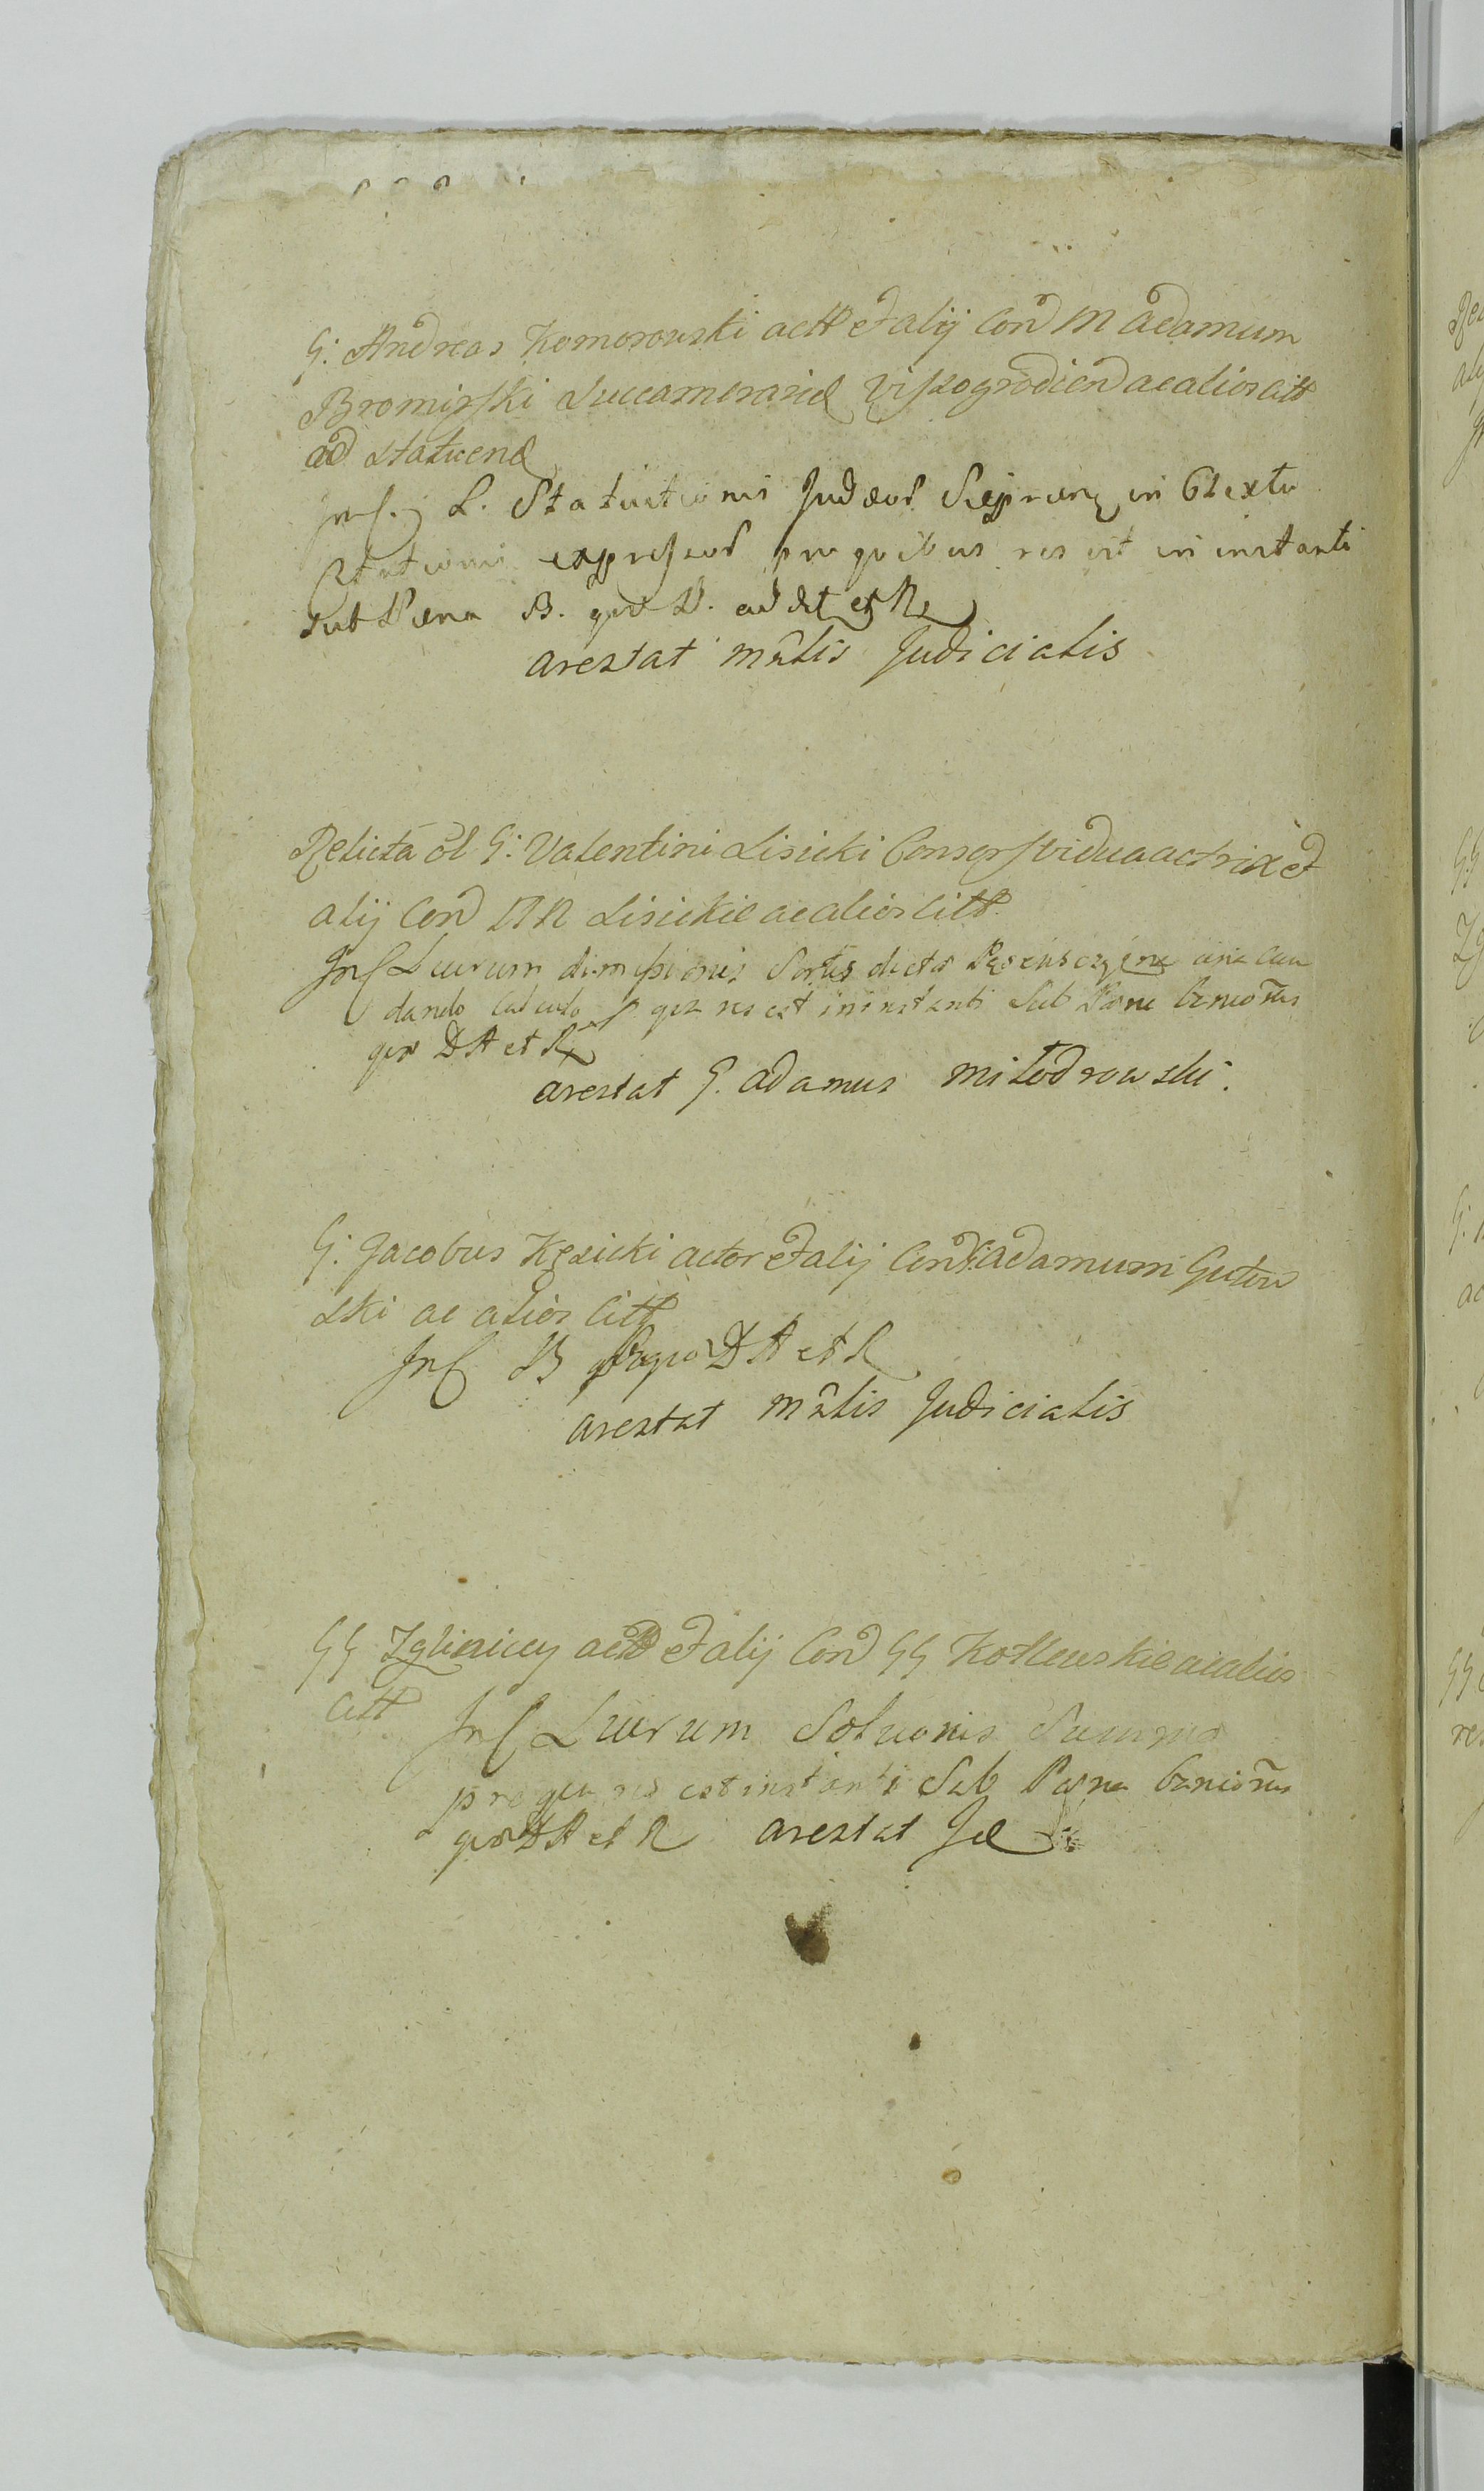 G: Andreas Komorowski actt et alij Con M Adamum
Bromirski Succamerarid Viszogrodien ac alios citt
ad statuend
Inf. L. Statuitionis Judæor in Ctextu
Citationis expressor pro quibus res est in instanti
sub Pæna B. qva D. addit et R
arestat mńlis Judicialis
Relicta ol G: Valentini Lisicki Consors vidua actrix et
alij Con NN Lisickie ac alios citt.
Inf Lucrum dimissionis Sortis dictæ una cum
dando calculo qua res est in instanti Sub Pœna
qva DA et R
arestat G. Adamus Miłodrowski.
G: Jacobus Kęsicki actor et alij Con G Adamum Gutow
ski ac alios citt
Inf B pro qva DA et R
arestat mńlis Judicialis
GG Zgliniccy act et alij Con GG Kotlewskie ac alios
citt Inf Lucrum Soluonis Summæ
pro qua res est instanti Sub Pœna
qva DA et R arestat Id